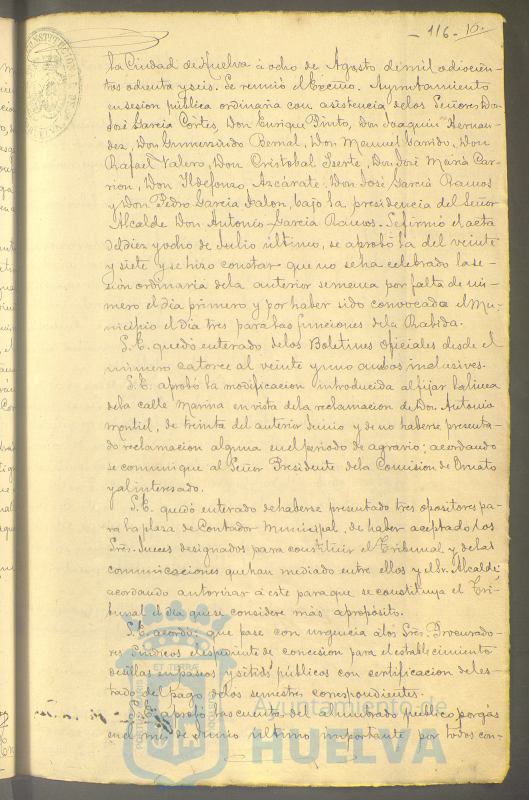 - 116 - 10.
la Ciudad de Huelva á ocho de Agosto de mil ochocien-
tos ochenta y seis. Se reunió el Excmo. Ayuntamiento
en sesion pública ordinaria con asistencia de los Señores Don
José García Cortés, Don Enrique Pinto, Don Joaquin Hernan-
dez, Don Gumersindo Bernal, Don Manuel Garrido, Don
Rafael Valero, Don Cristobal Jeerte, Don José María Car-
rion, Don Ildefonso Azcárate, Don José García Ramos
y Don Pedro García Jalon, bajo la presidencia del Señor
Alcalde Don Antonio García Ramos. Se firmó el acta
del diez y ocho de Julio último, se aprobó la del veinte
y siete y se hizo constar que no se ha celebrado la se-
sion ordinaria de la anterior semana por falta de nú-
mero el dia primero y por haber sido convocada el Mu-
nicipio el dia tres para las funciones de la Rabida.
S.E. quedó enterado de los Boletines oficiales desde el
número catorce al veinte y uno ambos inclusives.
S.E. aprobó la modificacion introducida al fijar la linea
de la calle Marina en vista de la reclamacion de Don Antonio
Montiel, de treinta del anterior Junio y de no haberse presenta-
do reclamacion alguna en el periodo de agravio; acordando
se comunique al Señor Presidente de la Comision de Ornato
y al interesado.
S.E. quedó enterado de haberse presentado tres opositores pa-
ra la plaza de Contador Municipal, de haber aceptado los
Sres. Jueces designados para constituir el Tribunal y de las
comunicaciones que han mediado entre ellos y el Sr. Alcalde;
acordando autorizar á este para que se constituya el Tri-
bunal el dia que se considere más apropósito.
S.E. acordó: que pase con urgencia á los Sres. Procurado-
res Síndicos el espediente de concesion para el establecimiento
de sillas en paseos y sitios públicos con certificacion del es-
tado del pago de los semestres correspondientes.
S.E. aprobó las cuentas del alumbrado público por gas
en el mes de Junio último importante por todos con-
ET TERRÆ
Ayuntamiento de
HUELVA